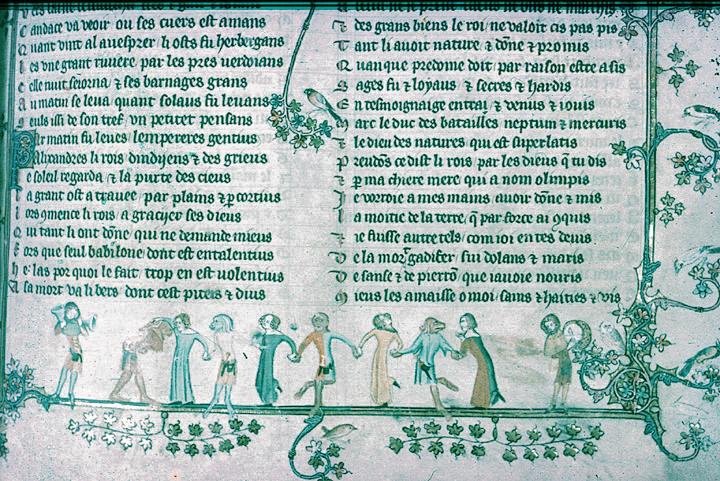 Candace va veoir ou ses cuers est amans
Quant vint al auesprer li osts fu herbergans
Les vne grant riuiere par les prez verdoians
Celle nuit seiorna ⁊ ses barnages grans
Au matin se leua quant solaus fu leuans
Seuls issi de son tref vn petitet pensans
Par matin fu leues lempereres gentius
Alixandres li rois dindijens ⁊ des grieus
Le soleil regarda ⁊ la purte des cieus
La grant ost a trauee par plains ⁊ ꝑ cortius
Lors ꝯmence li rois a gracijer ses dieus
Qui tant li ont dõne qui ne demande mieus
Fors que seul babilone dont est entalentius
He las por quoi le fait trop en est uolentius
A sa mort va li bers dont cest pities ⁊ dius
⁊ des grans biens le roi ne valoit cis pas pis
Tant li auoit nature ⁊ dõne ⁊ promis
Quanque predome doit par raison estre asis
Sages fu ⁊ loyaus ⁊ secres ⁊ hardis
En tesmoignaige entrai ⁊ venus ⁊ iouis
Marc le duc des batailles neptum ⁊ mercuris
⁊ le dieu des natures qui est superlatis
Prendons ce dist li rois par les diens q̃ tu dis
⁊ ꝑ ma chiere mere qui a nom olimpis
Je vorroie a mes mains auoir dõne ⁊ mis
La moitie de la terre q̃ par force ai ꝯquis
⁊ ie fuisse autre tels com ior en tes deuis
De la mort gadifer fui dolans ⁊ maris
De sanse ⁊ de pierron que iauoie nouris
Mieus les amaisse o moi sains ⁊ haities ⁊ vis